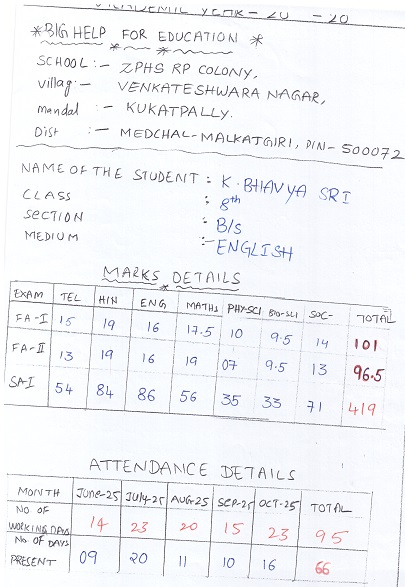 ACADEMIC YEAR - 20 - 20
*BIG HELP FOR EDUCATION *
SCHOOL :- ZPHS RP COLONY,
Villag :- VENKATESHWARA NAGAR,
mandal :- KUKATPALLY.
Dist :- MEDCHAL-MALKATGIRI, PIN- 500072
NAME OF THE STUDENT : K. BHAVYA SRI
CLASS : 8th
SECTION : B/s
MEDIUM :- ENGLISH
MARKS DETAILS
EXAM TEL HIN ENG MATHS PHY-SCI BIO-SCI SOC- TOTAL
FA-I 15 19 16 17.5 10 9.5 14 101
FA-II 13 19 16 19 07 9.5 13 96.5
SA-I 54 84 86 56 35 33 71 419
ATTENDANCE DETAILS
MONTH June-25 July-25 AUG-25 SEP-25 OCT-25 TOTAL
NO OF WORKING DAYS 14 23 20 15 23 95
NO OF DAYS PRESENT 09 20 11 10 16 66